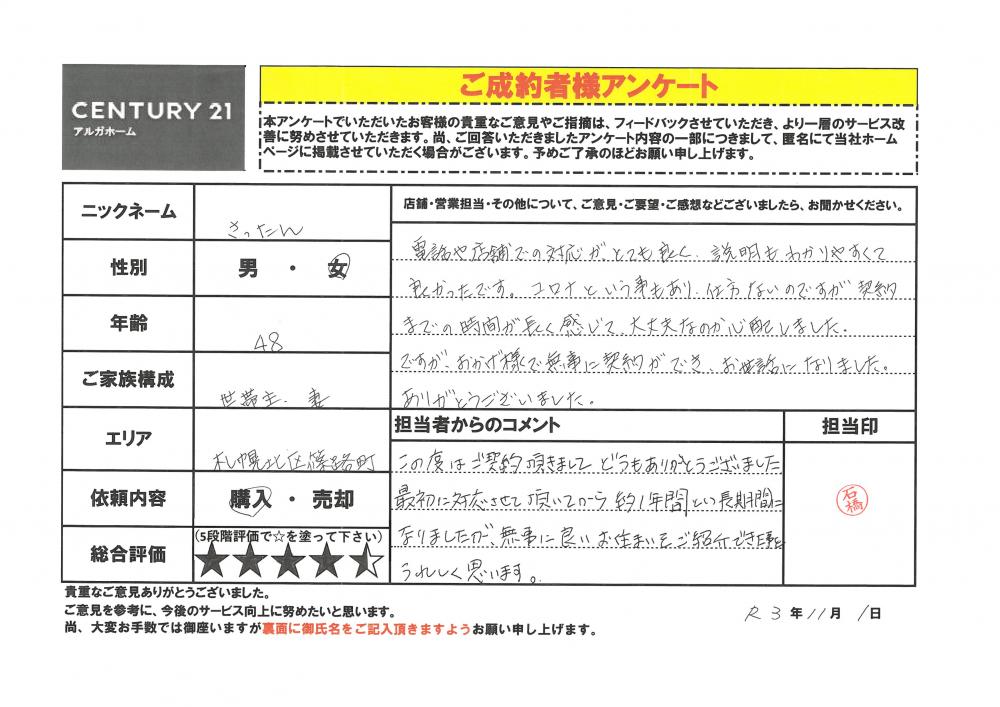 CENTURY 21
アルガホーム
ご成約者様アンケート
本アンケートでいただいたお客様の貴重なご意見やご指摘は、フィードバックさせていただき、より一層のサービス改
善に努めさせていただきます。尚、ご回答いただきましたアンケート内容の一部につきまして、匿名にて当社ホーム
ページに掲載させていただく場合がございます。予めご了承のほどお願い申し上げます。
ニックネーム
さったん
性別
男 ・ 女
年齢
48
ご家族構成
世帯主、妻
エリア
札幌北区篠路町
依頼内容
購入 ・ 売却
総合評価
(5段階評価で☆を塗って下さい)
店舗・営業担当・その他について、ご意見・ご要望・ご感想などございましたら、お聞かせください。
電話や店舗での対応がとても良く、説明もわかりやすくて
良かったです。コロナという事もあり、仕方ないのですが契約
までの時間が長く感じて、大丈夫なのか心配しました。
ですが、おかげ様で無事に契約ができ、お世話になりました。
ありがとうございました。
担当者からのコメント
この度はご契約頂きまして、どうもありがとうございました
最初に対応させて頂いてから約1年間という長期間に
なりましたが、無事に良いお住まいをご紹介でき大変
うれしく思います。
担当印
石橋
貴重なご意見ありがとうございました。
ご意見を参考に、今後のサービス向上に努めたいと思います。
尚、大変お手数では御座いますが裏面に御氏名をご記入頂きますようお願い申し上げます。
R3年11月1日